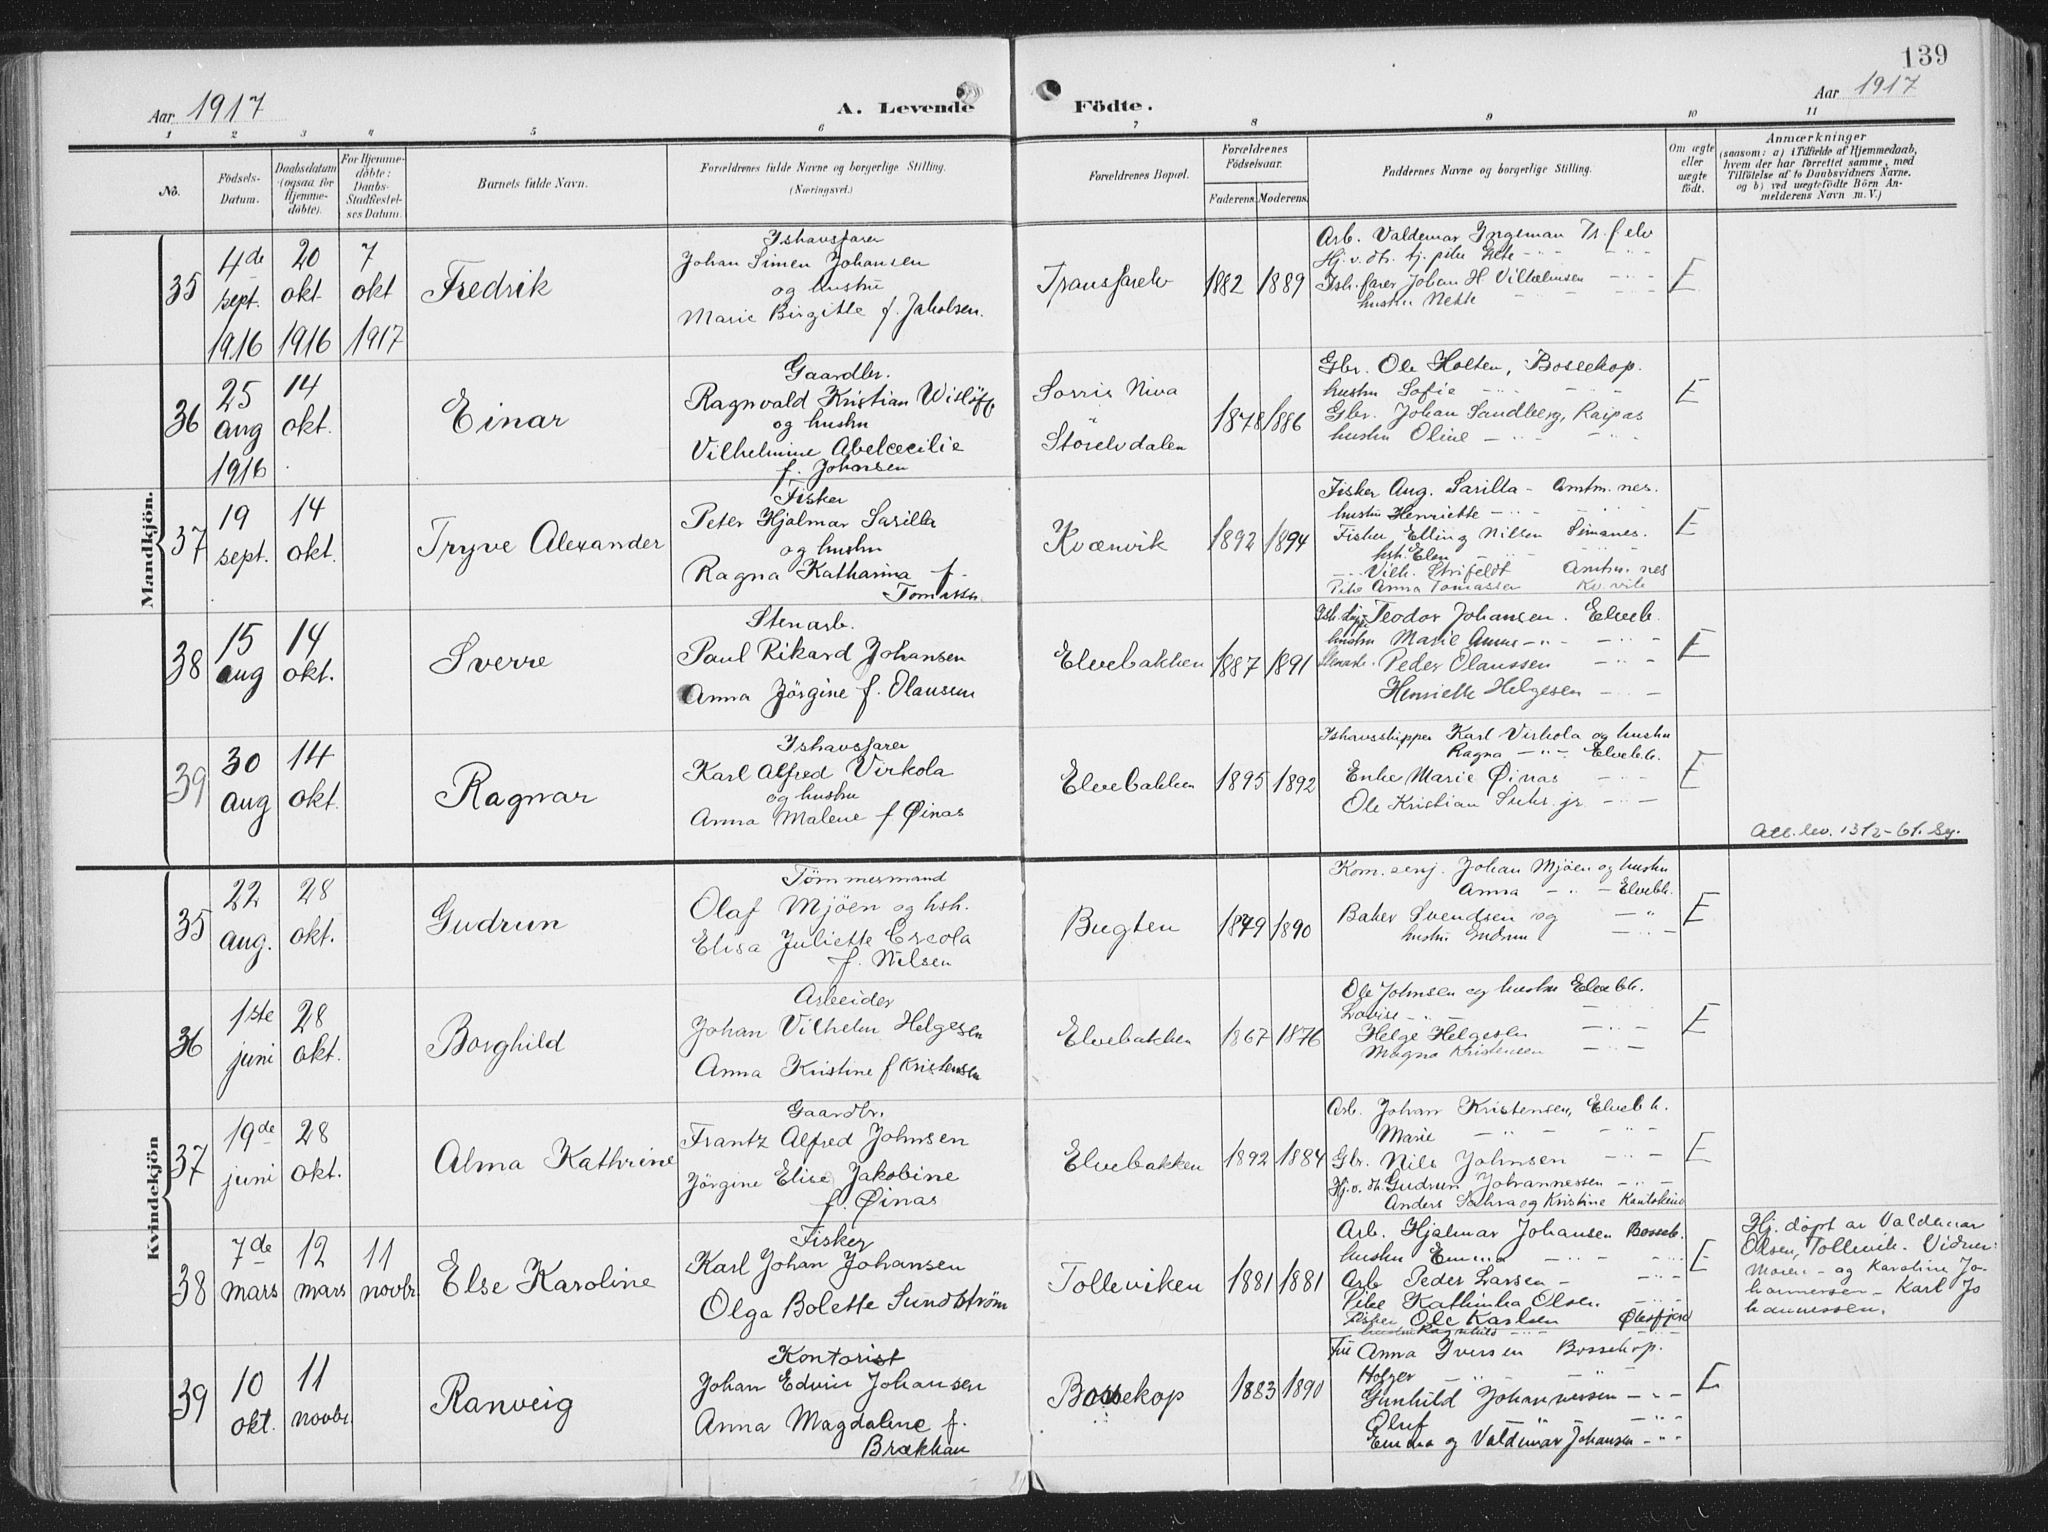 139
Aar 1917
A. Levende Födte.
Aar 1917
1 2 3 4 5 6 7 8 9 10 11
No.
Födsels-
Datum.
Daabsdatum
(ogsaa for
Hjemme-
döbte).
For Hjemme-
döbte:
Daabs-
Stadfæstel-
ses Datum.
Barnets fulde Navn.
Forældrenes fulde Navne og borgerlige Stilling.
(Næringsvei.)
Forældrenes Bopæl.
Forældrenes
Födselsaar.
Faderens. Moderens.
Faddernes Navne og borgerlige Stilling.
Om ægte
eller
uægte
födt.
Anmærkninger
(saasom: a) i Tilfælde af Hjemmedaab,
hvem der har forrettet samme, med
Tilföielse af to Daabsvidners Navne,
og b) ved uægtefödte Börn An-
melderens Navn m. V.)
Mandkjön.
35
4de
sept.
1916
20
okt
1916
7
okt
1917
Fredrik
Ishavsfarer
Johan Simen Johansen
og hustru
Marie Birgitte f. Jakobsen.
Transfarelv
1882 1889
Arb. Valdemar Ingeman Tr. f elv
Ish. farer Johan H Vilhelmsen
hustru Nette
E
36
25
aug
1916
14
okt.
Einar
Gaardbr.
Ragnvald Kristian Wisløff
og hustru
Vilhelmine Abelcecilie
f. Johansen
Sorris Niva
Storelvdalen
1878 1886
Gbr. Ole Holten, Bossekop.
hustru Sofie
Gbr. Johan Sandberg, Raipas
hustru Oline
E
37
19
sept.
14
okt.
Tryve Alexander
Fisker
Peter Hjalmar Sarilla
og hustru
Ragna Katharina f.
Tomassen
Kvænvik
1892 1894
Fisker Aug. Sarilla - Amtm. nes.
hustru Henriette
Fisker Elling Nilsen Simanes.
hsh. Elen
Vilh. Strifeldt Amtm. nes
Pike Anna Tomassen Kv. vik
E
38
15
aug
14
okt.
Sverre
Stenarb.
Paul Rikard Johansen
Anna Jörgine f. Olausen
Elvebakken
1887 1891
Teodor Johansen. Elveb.
hustru Marie Anna
Stenarb. Peder Olaussen
Henriette Helgesen
E
39
30
aug
14
okt.
Ragnar
Ishavsfarer
Karl Alfred Virkola
og hustru
Anna Malene f Øinas
Elvebakken
1895 1892
Ishavsskipper Karl Virkola og hustru
Ragna Elvebk.
Enke Marie Øinas
Ole Kristian Suhr. jr.
E
Att. lev. 13/2-61. Sg.
Kvindekjön
35
22
aug.
28
okt.
Gudrun
Tömmermand
Olaf Mjöen og hsh.
Elisa Juliette Ercola
f. Nilsen
Bugten
1879 1890
Kom. senj. Johan Mjöen og hustru
Anna Elvebk.
Baker Svendsen og
hustru Gudrun
E
36
1ste
juni
28
okt.
Borghild
Arbeider
Johan Vilhelm Helgesen
Anna Kristine f Kristensen
Elvebakken
1867 1876
Ole Johnsen og hustru Elvebk.
Lovise
Helge Helgesen
Magna Kristensen
E
37
19de
juni
28
okt.
Alma Kathrine
Gaardbr.
Frantz Alfred Johnsen
Jörgine Elise Jakobine
f. Øinas
Elvebakken
1892 1884
Arb. Johan Kristensen, Elvebk.
Marie
Gbr. Nils Johnsen
Hj. v. dt. Gudrun Johannessen
Anders Sahra og Kristine Kautokeino
E
38
7de
mars
12
mars
11
novbr.
Else Karoline
Fisker
Karl Johan Johansen
Olga Bolette Sundström
Tolleviken
1881 1881
Arb. Hjalmar Johansen Bossek.
hustru Emma
Arb Peder Larsen
Pike Kathinka Olsen
Fisker Ole Karlsen Øksfjord
hustru Ragnhild
E
Hj. döpt av Valdemar
Olsen, Tollevik. Vidner:
Maren - og Karoline Jo-
hannersen - Karl Jo
hannessen.
39
10
okt.
11
novbr.
Ranveig
Kontorist
Johan Edvin Johansen
Anna Magdalene f.
Brækhan
Bossekop
1883 1890
Anna Iversen Bossekop.
Holger
Gunhild Johannessen
Oluf
Emma og Valdemar Johansen
E